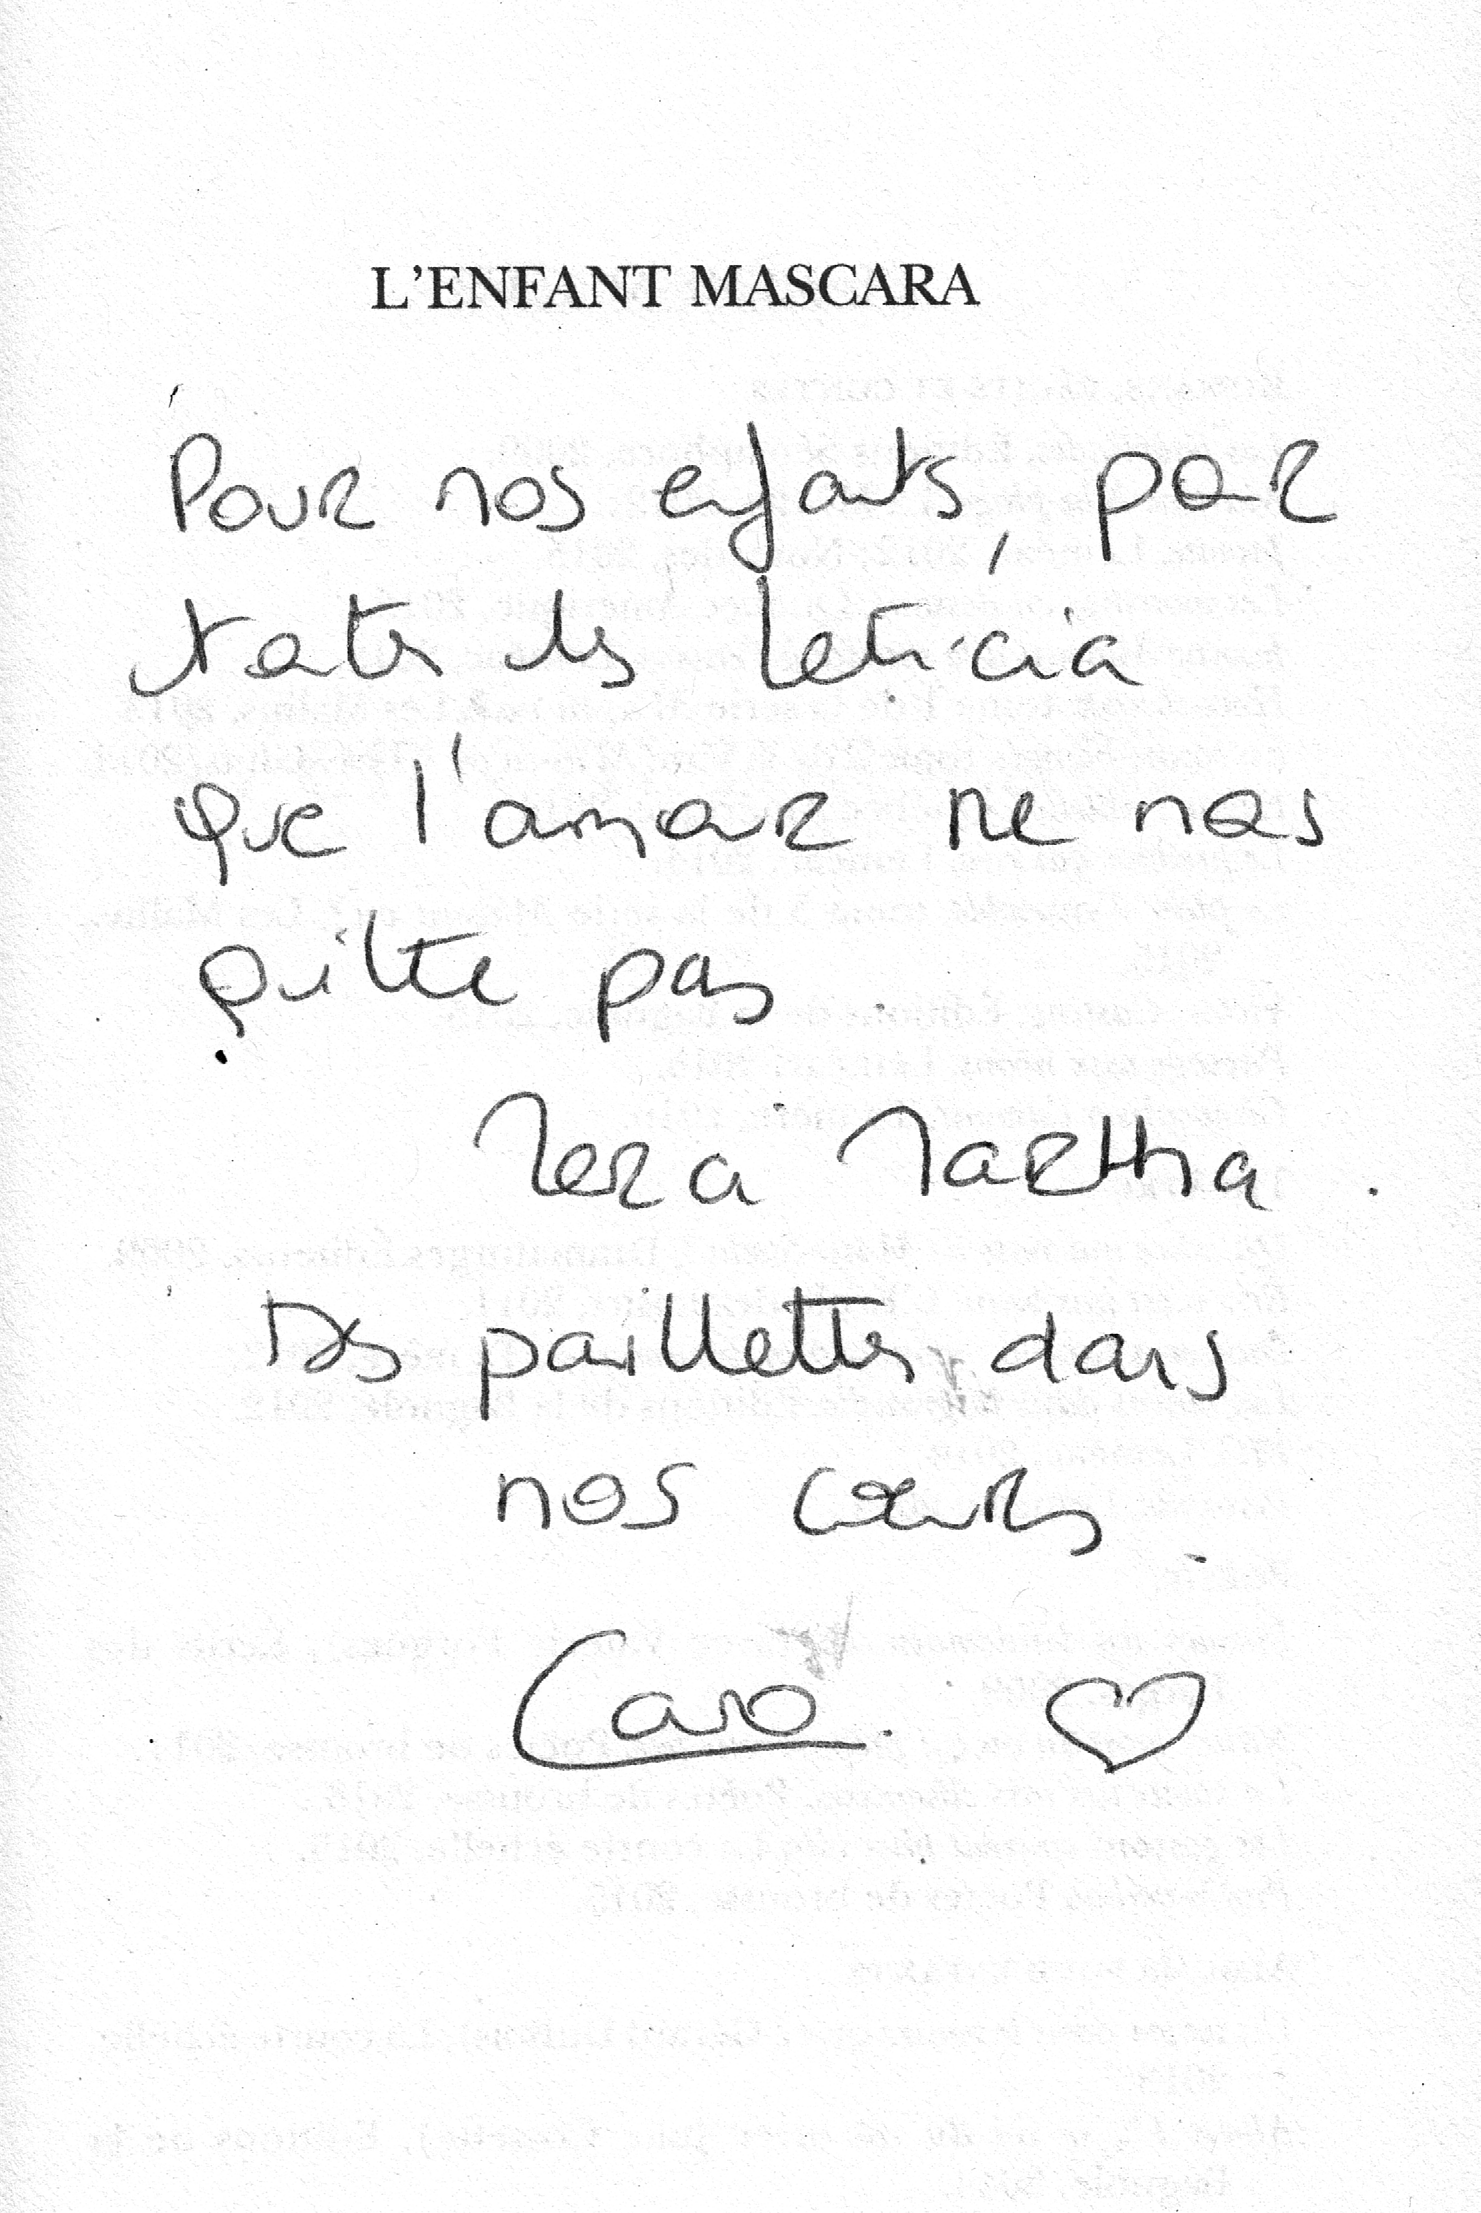 L'ENFANT MASCARA
Pour nos enfants, pour
toutes les Leticia
que l'amour ne nous
quitte pas.
Merci Martha.
Des paillettes dans
nos cœurs.
Caro.